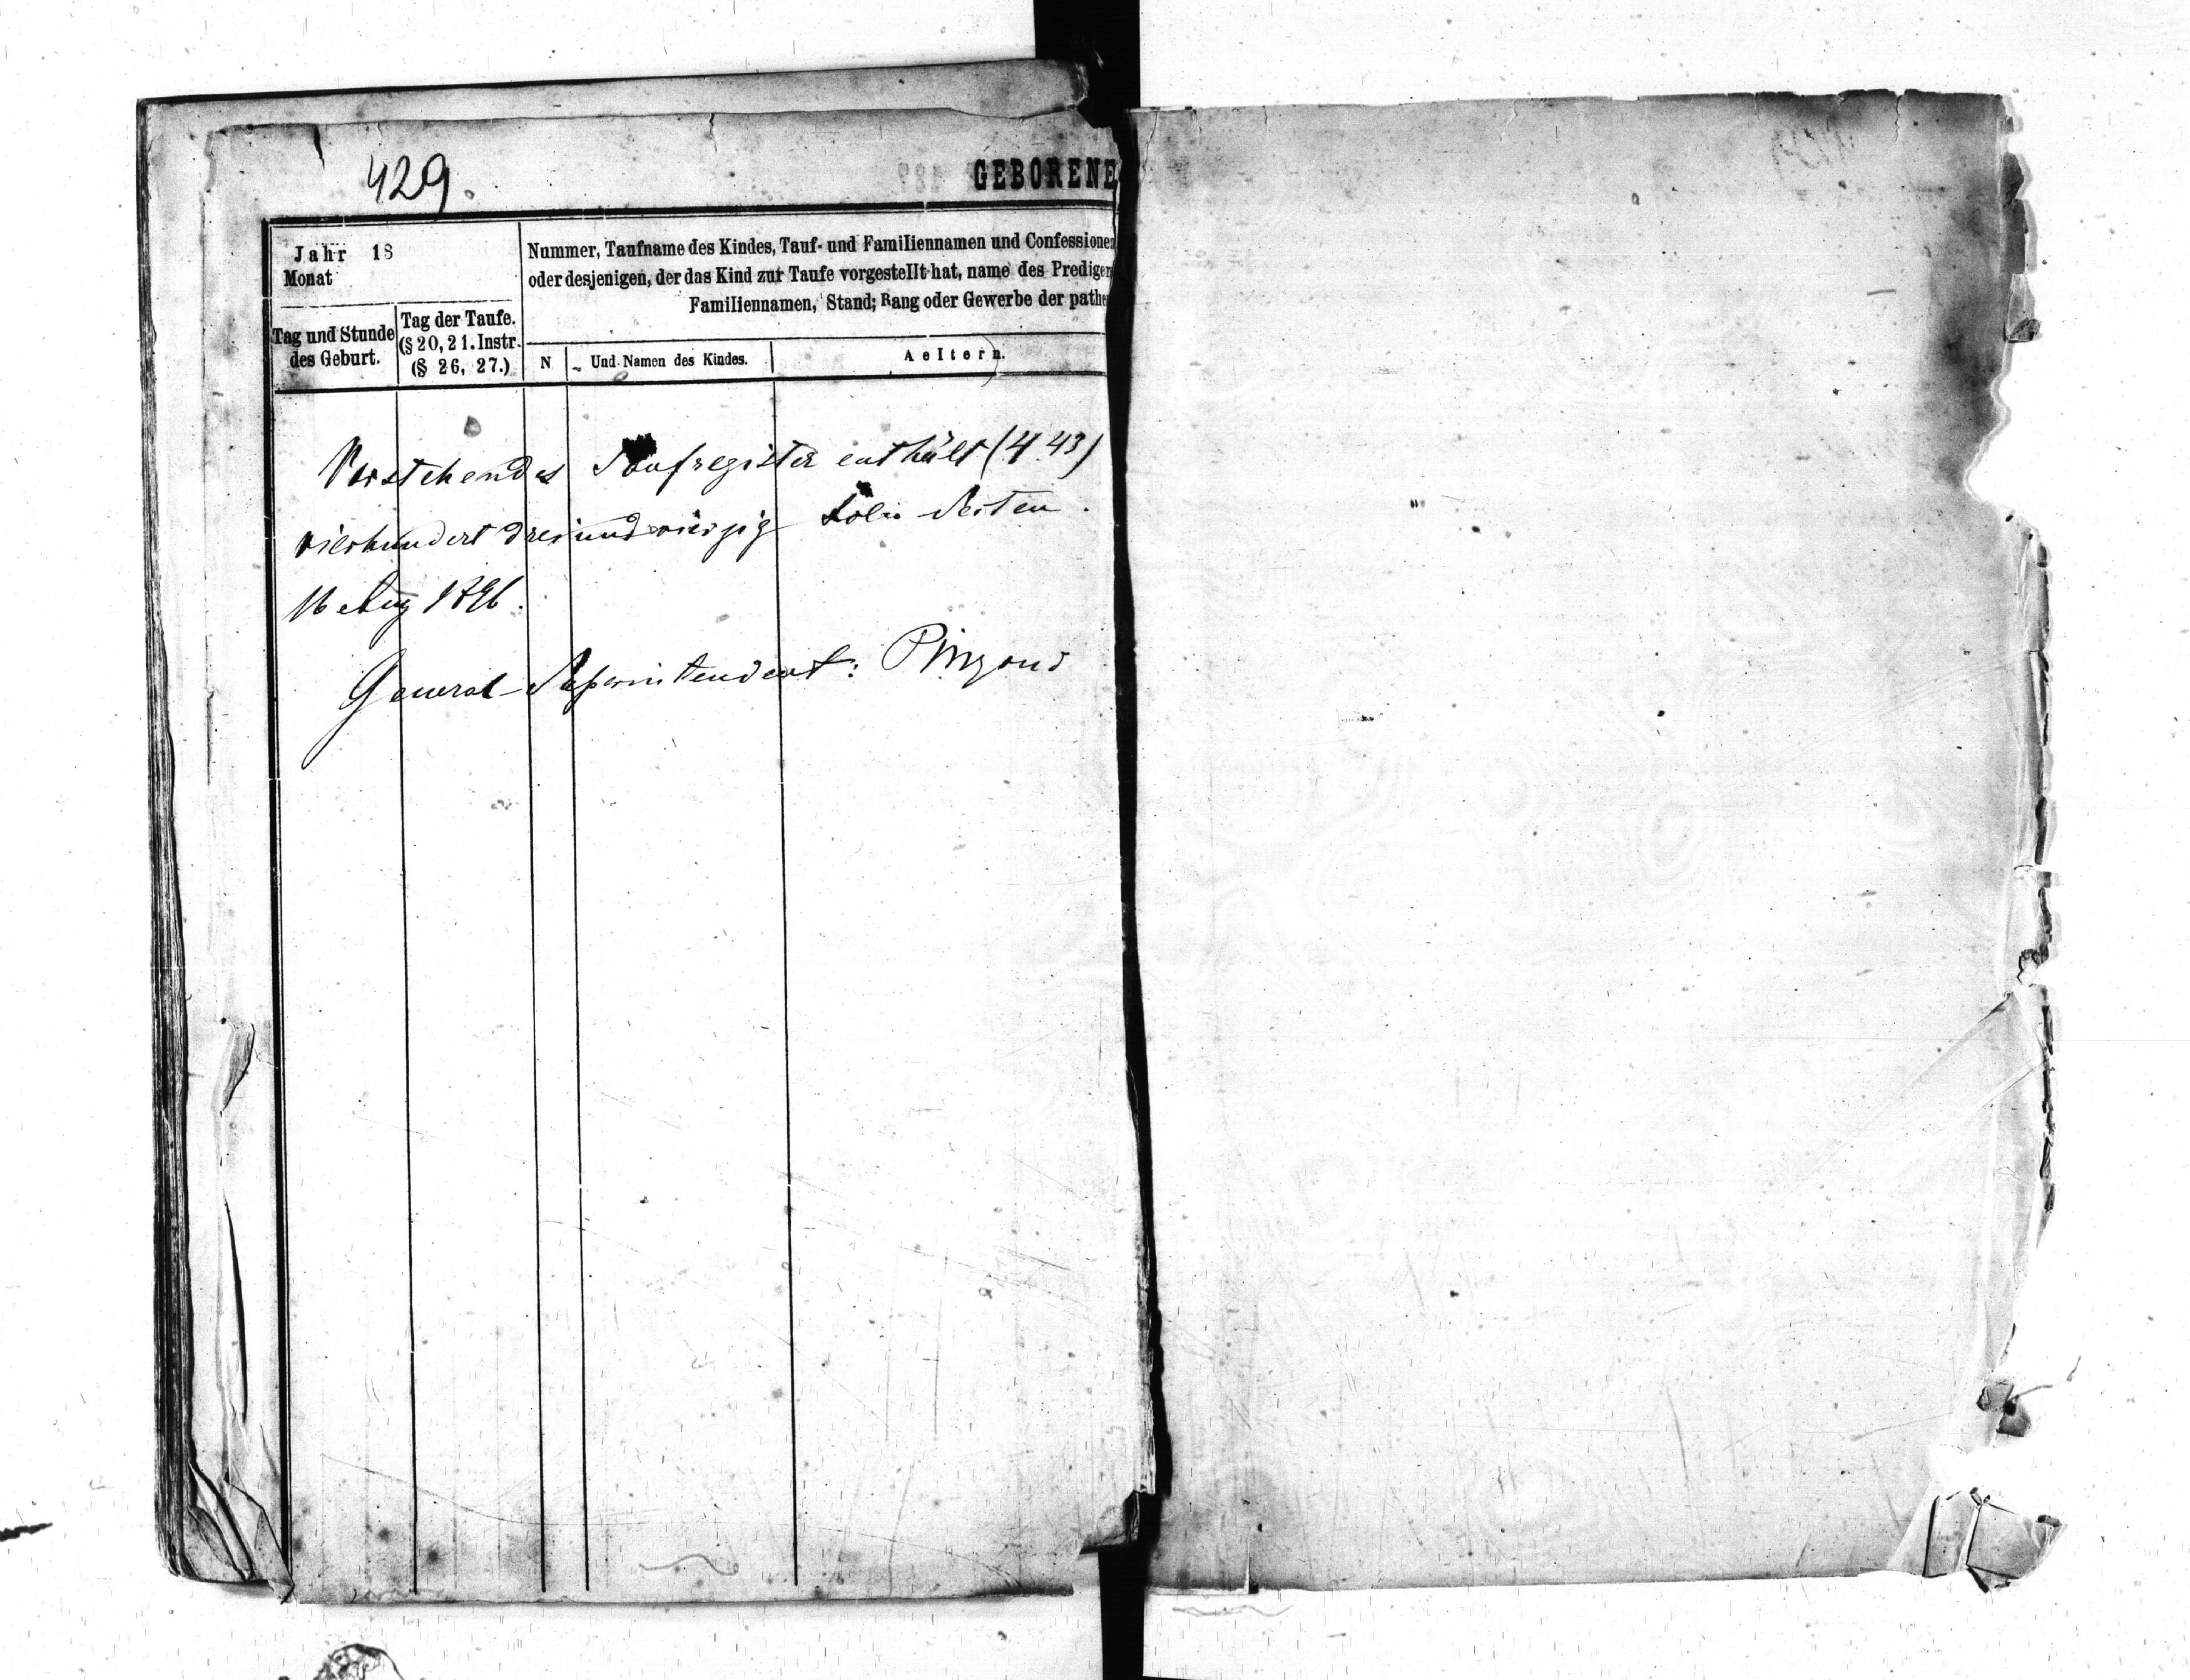 429.
GEBORENE
Jahr 18
Monat
Nummer, Taufname des Kindes, Tauf- und Familiennamen und Confessionen
oder desjenigen, der das Kind zur Taufe vorgestellt hat, name des Prediger
Familiennamen, Stand; Rang oder Gewerbe der pathe
Tag und Stunde
des Geburt.
Tag der Taufe.
(§ 20, 21. Instr.
(§ 26, 27.)
N
Und Namen des Kindes.
Aeltern.
Vorstehendes Taufregister enthält (443)
vierhundert dreiundvierzig Folio Seiten.
16 Aug 1896.
General-Superintendent: Pingoud